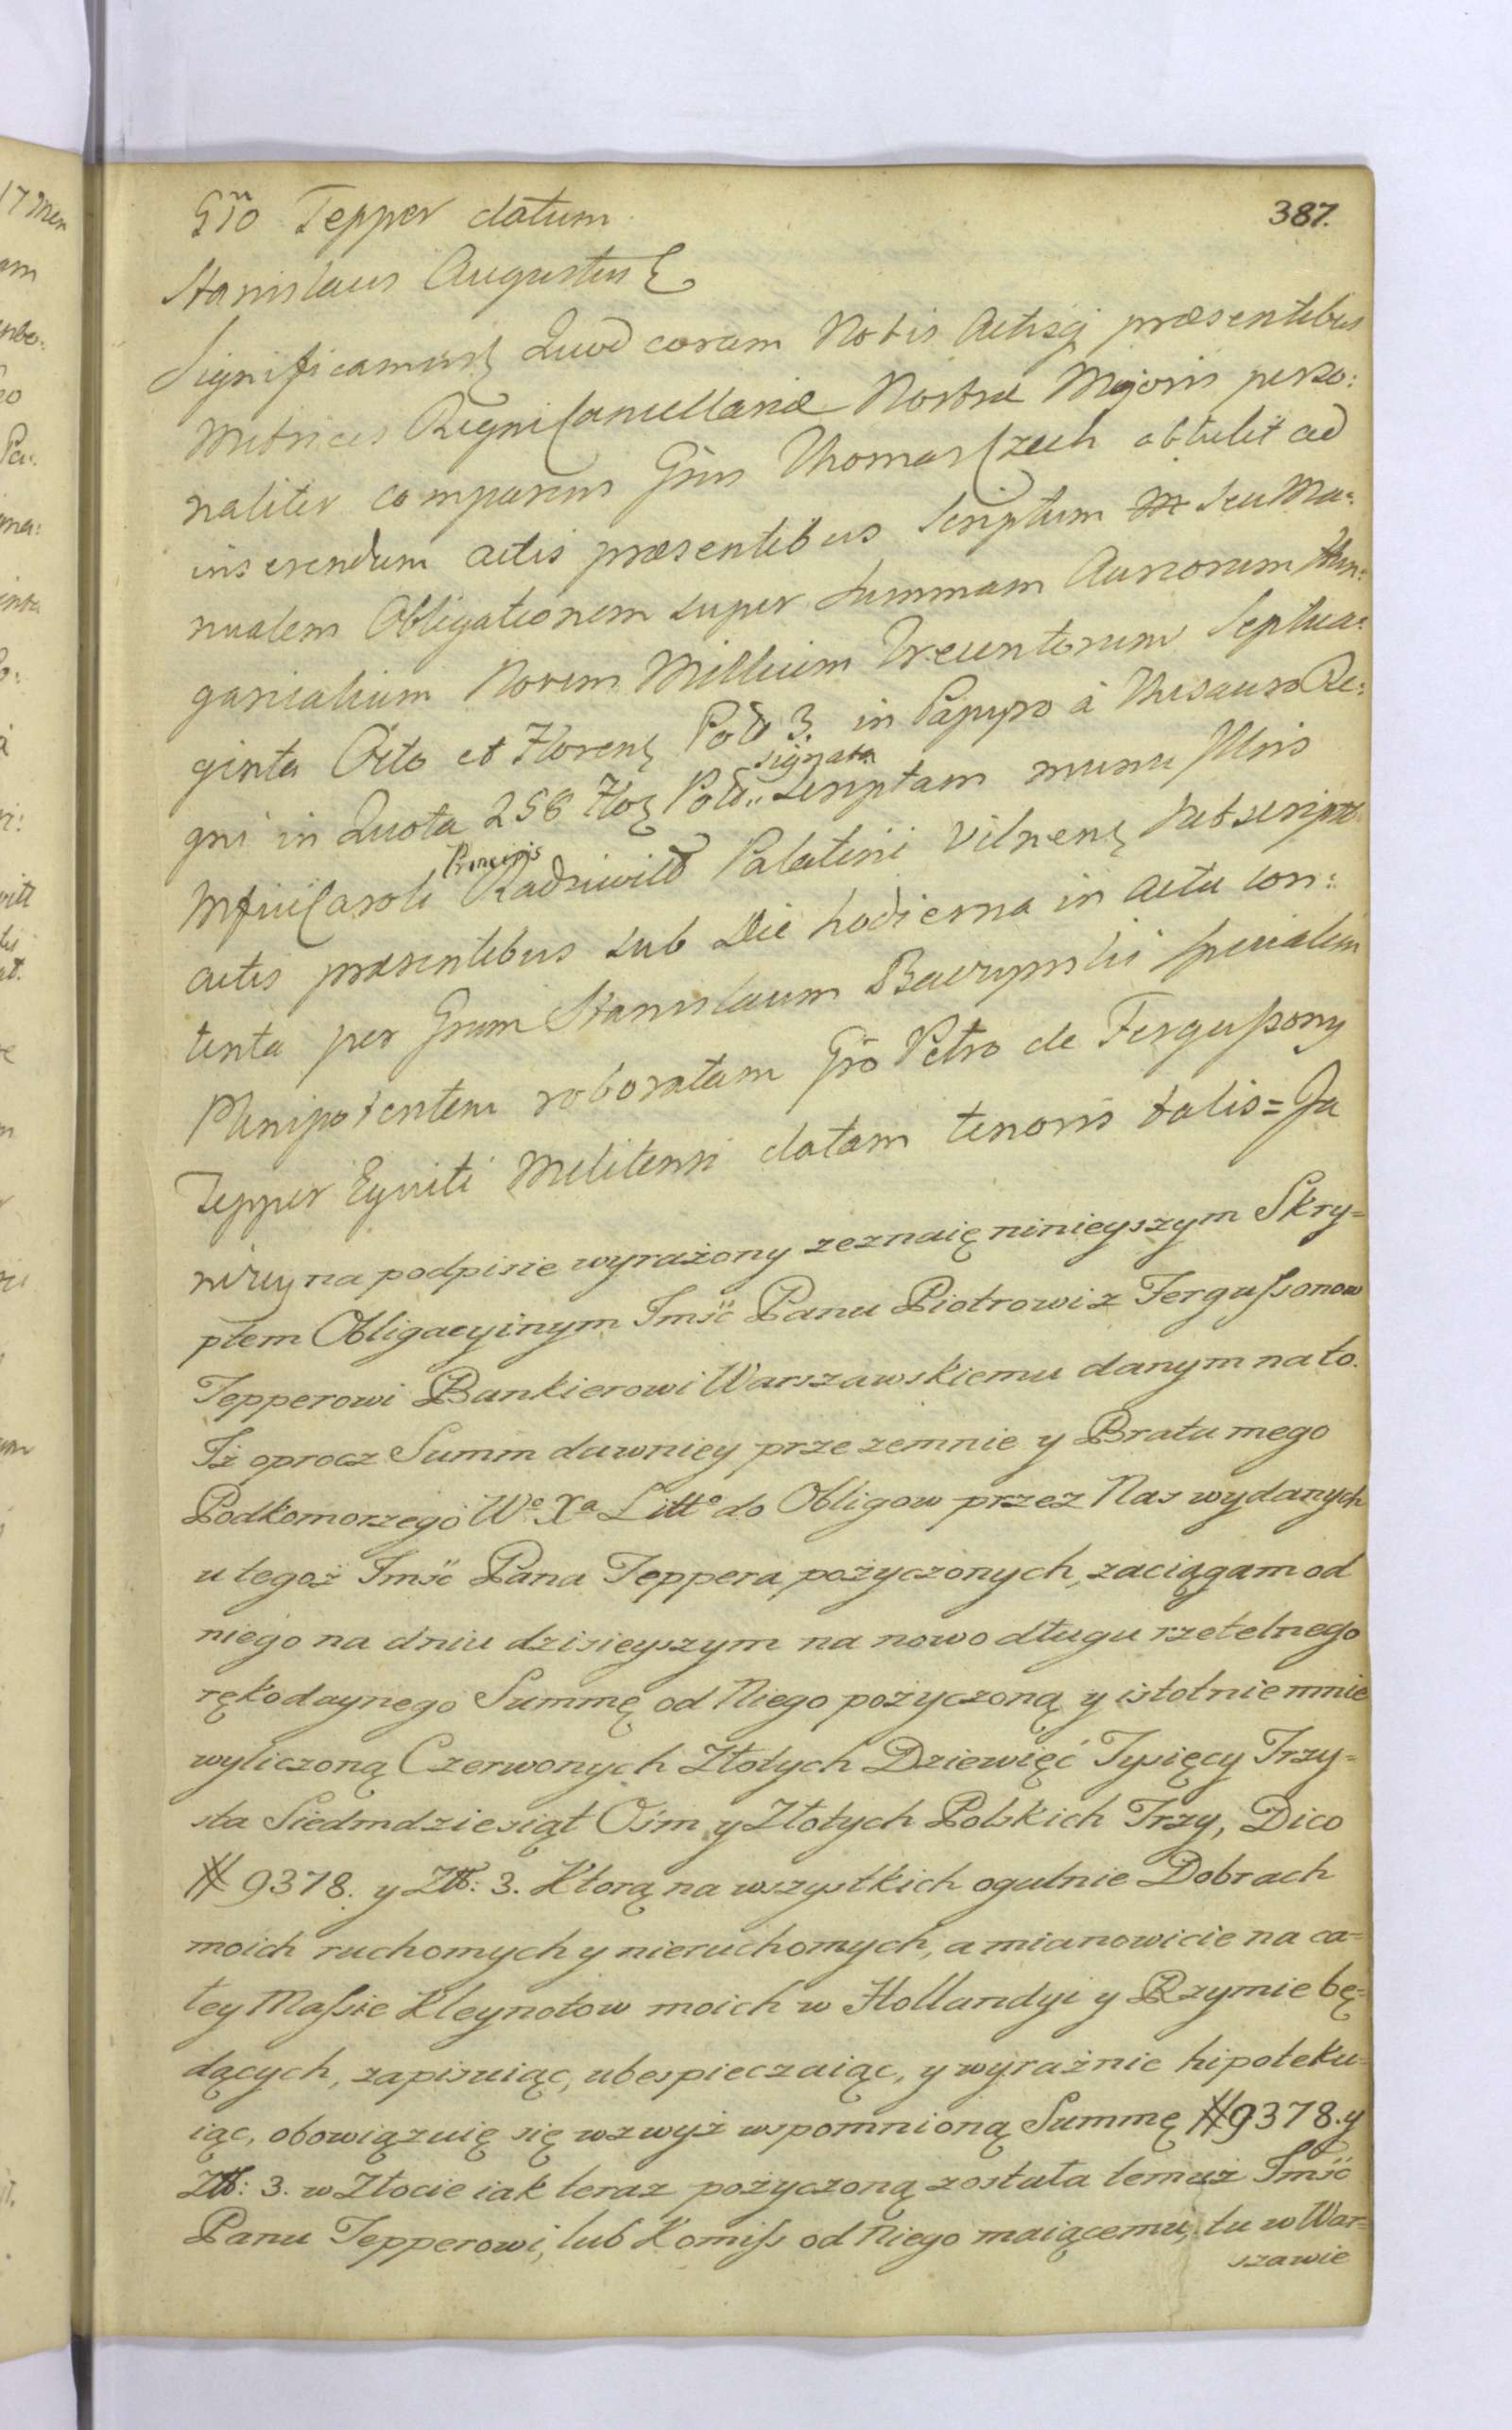 387.
Gño Tepper datum
Stanislaus Augustus
Significamus Quod coram Nobis Actisq præsentibus
Metrices Regni Cancellariæ Nostræ Majoris perso:
naliter comparens Gñs Thomas Czech obtulit ad
inserendum actis præsentibus Scriptum Seu Ma:
nualem Obligationem super Summam Aureorum Hun:
garicalium Novem Millium Trecentorum Septua:
ginta Octo et Floren Pol 3. in Papyro à Thesauro Re:
gni in Quota 258 Flo Pol: signata Scriptam manu Illris
Mfici Caroli Principis Radziwiłł Palatini Vilnens Subscriptã
actis præsentibus sub Die hodierna in actu con:
tenta per Gnum Stanislaum specialem
Plenipotentem roboratam Gño Petro de Fergussony
Tepper Equiti Melitensi datam tenoris talis = Ja
niżey na podpisie wyrażony zeznaię ninieyszym Skry=
ptem Obligacyinym Imść Panu Piotrowi z Fergussonow
Tepperowi Bankierowi Warszawskiemu danym na to.
Iż oprocz Summ dawniey przezemnie y Brata mego
Podkomorzego Wº Xª Littº do Obligow przez Nas wydanych
u tegoż Imść Pana Teppera pożyczonych, zaciągam od
niego na dniu dzisieyszym na nowo długu rzetelnego
rękodaynego Summę od Niego pożyczoną y istotnie mnie
wyliczoną Czerwonych Złotych Dziewięć Tysięcy Trzy=
sta Siedmdziesiąt Ośm y Złotych Polskich Trzy, Dico
# 9378. y Zł: 3. Ktorą na wszystkich ogulnie Dobrach
moich ruchomych y nieruchomych, a mianowicie na ca=
łey Massie Kleynotow moich w Hollandyi y Rzymie bę=
dących, zapisuiąc, ubespieczaiąc, y wyraźnie hipoteku=
iąc, obowiązuię się wzwyż wspomnioną Summę #9378. y
Zł: 3. w Złocie iak teraz pożyczoną została temuż Imść
Panu Tepperowi, lub Komiss od Niego maiącemu, tu w War=
szawie